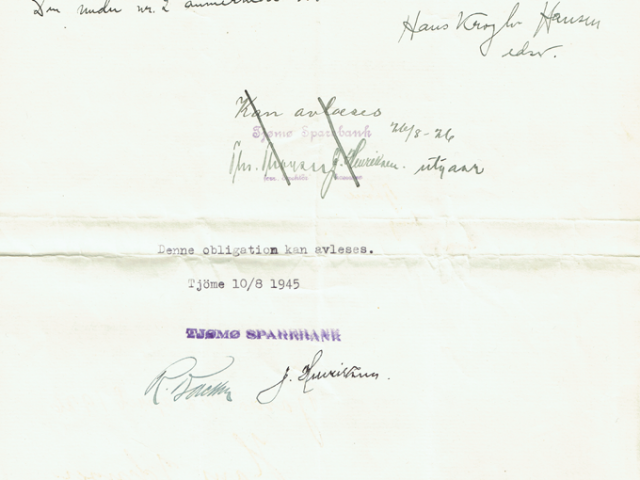 Den under nr. 2
Hans Krogh Hansen
edsv.
Kan avlæses
Tjømø Sparebank 26/8-26
J. Henriksen. utgaar
Denne obligation kan avleses.
Tjöme 10/8 1945
TJØMØ SPAREBANK
J. Henriksen.